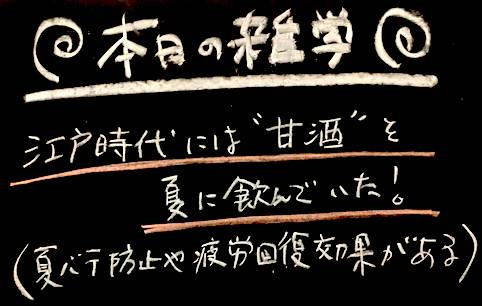 本日の雑学
江戸時代には“甘酒”を
夏に飲んでいた!
(夏バテ防止や疲労回復効果がある)